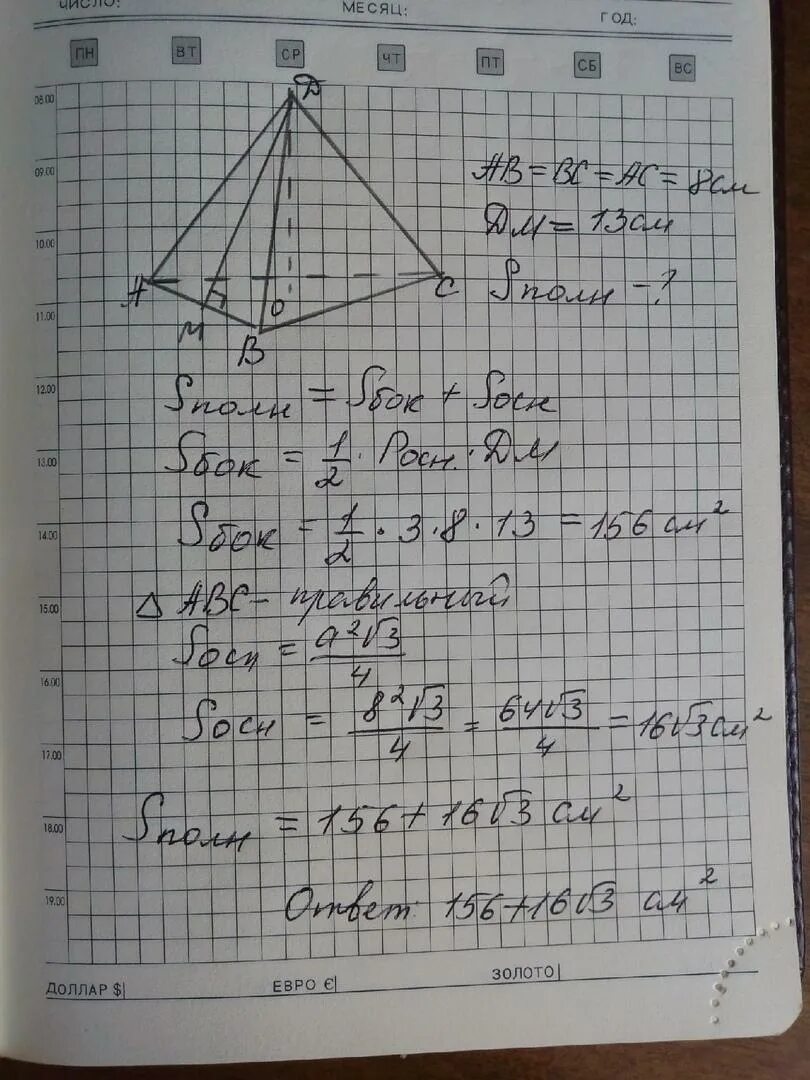 ЧИСЛО: МЕСЯЦ: ГОД:
ПН ВТ СР ЧТ ПТ СБ ВС
08.00
09.00
10.00
11.00
12.00
13.00
14.00
15.00
16.00
17.00
18.00
19.00
Д
A
M
B
O
C
AB = BC = AC = 8 см
ДМ = 13 см
Sполн - ?
Sполн = Sбок + Sосн
Sбок = 1/2 · Pосн · ДМ
Sбок = 1/2 · 3 · 8 · 13 = 156 см²
△ ABC - правильный
Sосн = a²√3/4
Sосн = 8²√3/4 = 64√3/4 = 16√3 см²
Sполн = 156 + 16√3 см²
Ответ: 156 + 16√3 см²
ДОЛЛАР $ ЕВРО € ЗОЛОТО